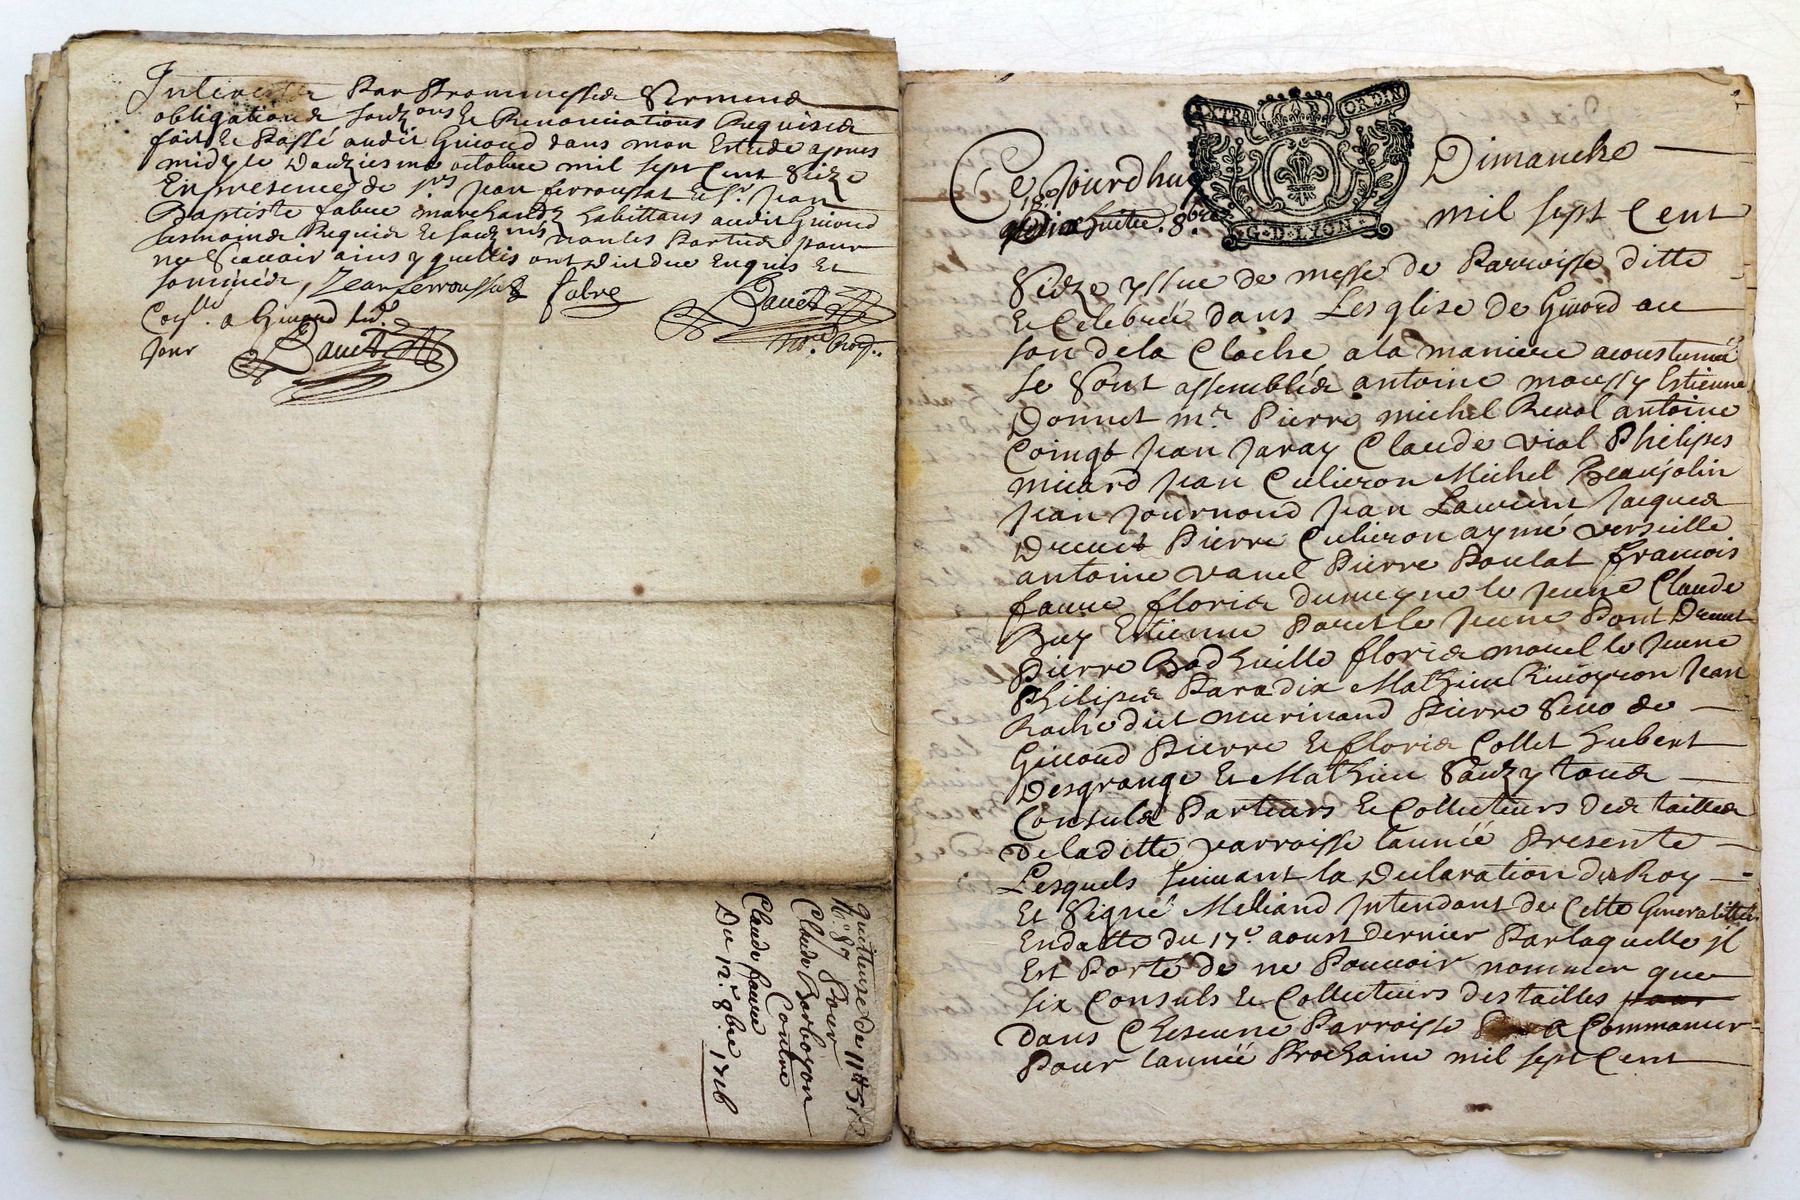 Interestz Par Prommesses Serment
obligations soubz ons et Renonciations Requises
fait et Passé audit Givord dans mon Estude apres
midy le Douziesme octobre mil sept Cent Seize
En presence de srs Jean ferroussat et sr. Jean
Baptiste fabre marchandz habittans audit Givord
tesmoins Requis et soubznes non les Parties pour
ne Scavoir ains y quelles ont dit de Enquis Et
sommées, Jean ferroussat fabre Bauet
Coll. a Givord led. nore. Roy.
Jour Bauet
Quittense De 11tt 5s
N.o 87 Pour
Claude Barboyon
Contre
Claude faure
Du 12.e 8bre 1716
EXTRA ORDIN
G·D·LYON
Ce Jourdhuy Dimanche
18e
dix huitie. 8bre mil sept Cent
Seize yssue de messe de Parroisse ditte
Et Celebrée dans Lesglise de Givord au
son de la Cloche a la maniere acoustumée
se Sont assemblés antoine moussy Estienne
Donnet mr. Pierre michel Reval antoine
Coingt Jean Jaray Claude vial Philipes
micard Jean Culieron Michel Beaujolin
Jean Journoud Jean Laurent Jacques
Drevet Pierre Culieron aymé verseille
antoine vanel Pierre Poulat francois
faure floris dumeyne le Jeune Claude
Buy Estienne Pauet le Jeune Pont Drevet
Pierre Badhuille floris morel le Jeune
Philipes Paradix Mathieu Jean
Roche dict murinand Pierre Seve de
Givord Pierre et floris Collet hubert
Desgrange Et Mathieu Sauzy tous
Consuls Parteurs Et Collecteurs des tailles
de laditte parroisse lannée Presente
Lesquels suivant la Declaration du Roy
Et Signé Melliand Intendant de Cette Generallitte
En datte du 17e. aoust dernier Par laquelle il
Est Porté de ne Pouvoir nommer que
six Consuls Et Collecteurs des tailles pour
dans Chescune Parroisse a Commancer
Pour lannée Prochaine mil sept Cent